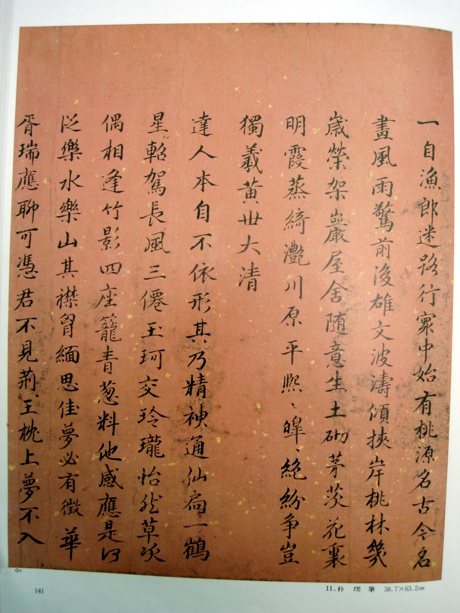 一自漁郎迷路行寰中始有桃源名古今名
畫風雨驚前後雄文波濤傾挾岸桃林幾
歳榮架巖屋舎随意生土砌茅茨花裏
明霞蒸綺灧川原平熈〻皡〻絶紛爭豈
獨羲黄世大清
達人本自不依形其乃精神通仙扃一鶴
星軺駕長風三僊玉珂交玲瓏怡然草次
偶相逢竹影四座籠青葱料他感應是何
從樂水樂山其襟胷緬思佳夢必有徵華
胥瑞應聊可憑君不見荊王枕上夢不入
141
11. 朴 堧 筆 38.7×63.2cm